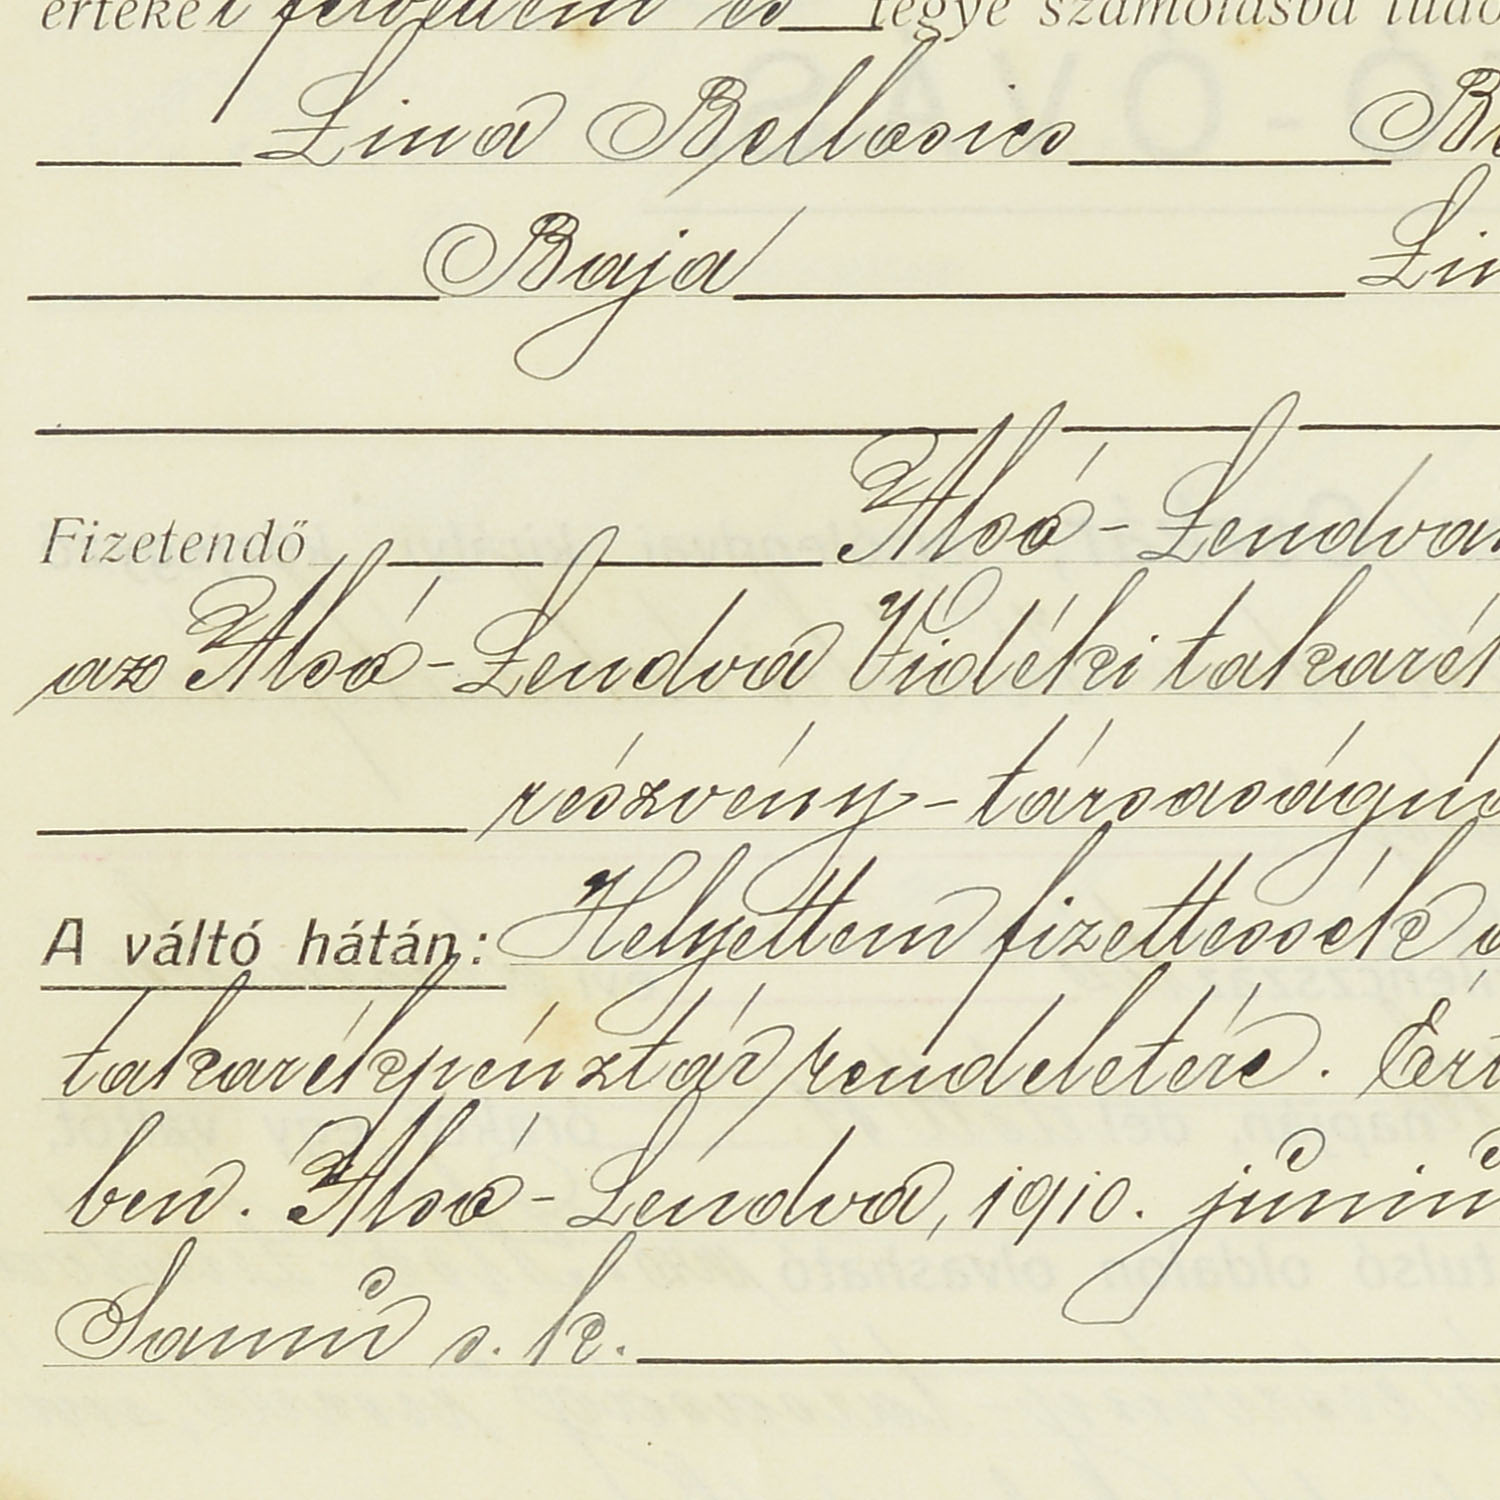 értékét felvettem és tegye számolásba
Lina Bellosics
Baja
Fizetendő Alsó-Lendvá
az Alsó-Lendva Vidéki takarék
részvény-társaságná
A váltó hátán: Helyettem fizettessék
takarékpénztár rendeletére. Ért
ben. Alsó-Lendva, 1910. június
Samu s. k.